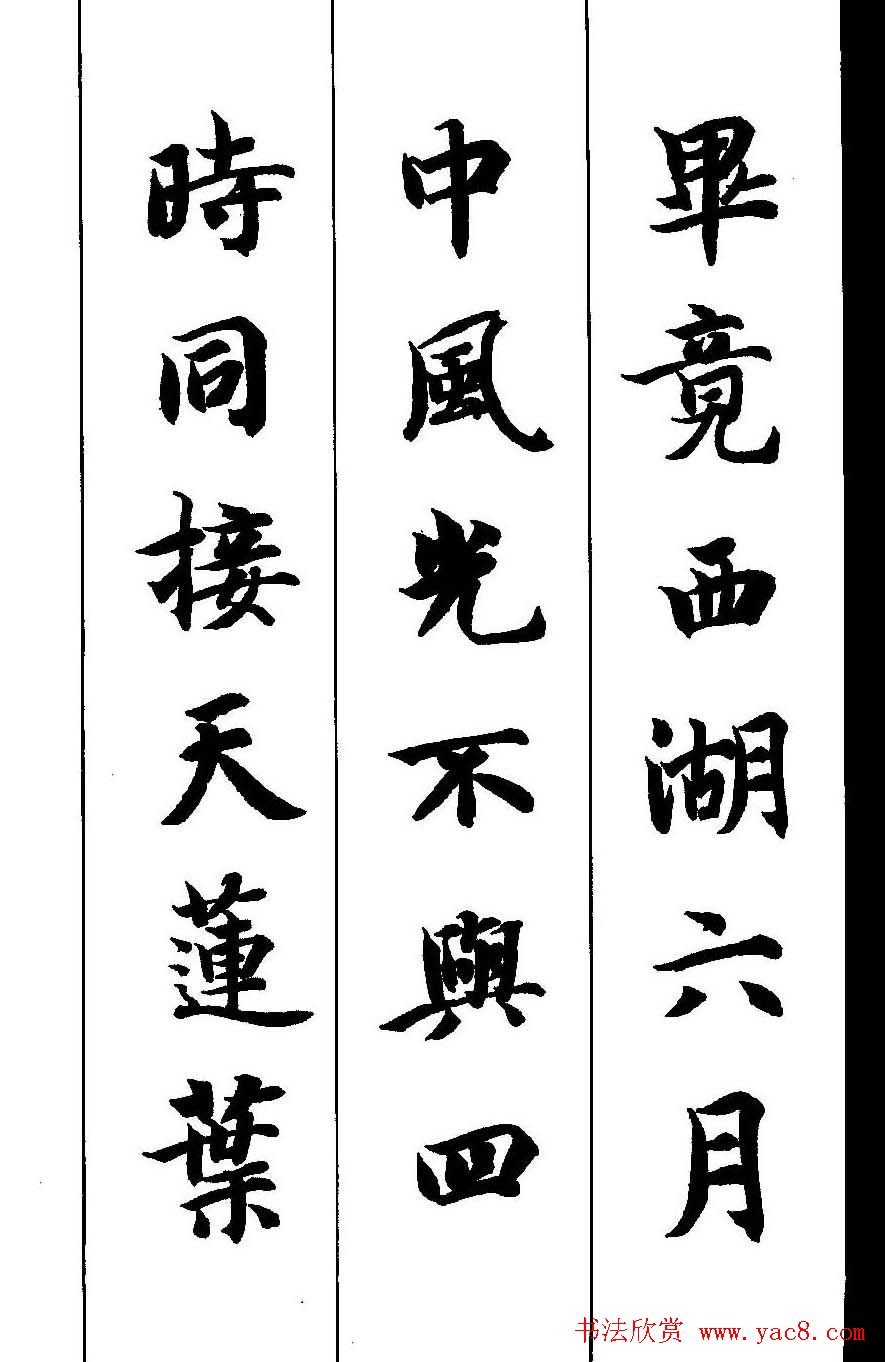 畢竟西湖六月
中風光不與四
時同接天蓮葉
书法欣赏 www.yac8.com